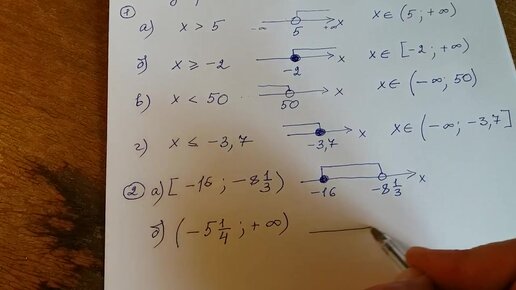 ① а) x > 5 -∞ 5 +∞ x x ∈ (5 ; +∞)
б) x ≥ -2 -2 x x ∈ [-2 ; +∞)
в) x < 50 50 x x ∈ (-∞ ; 50)
г) x ≤ -3,7 -3,7 x x ∈ (-∞ ; -3,7]
② а) [-16 ; -8 1/3) -16 -8 1/3 x
б) (-5 1/4 ; +∞)